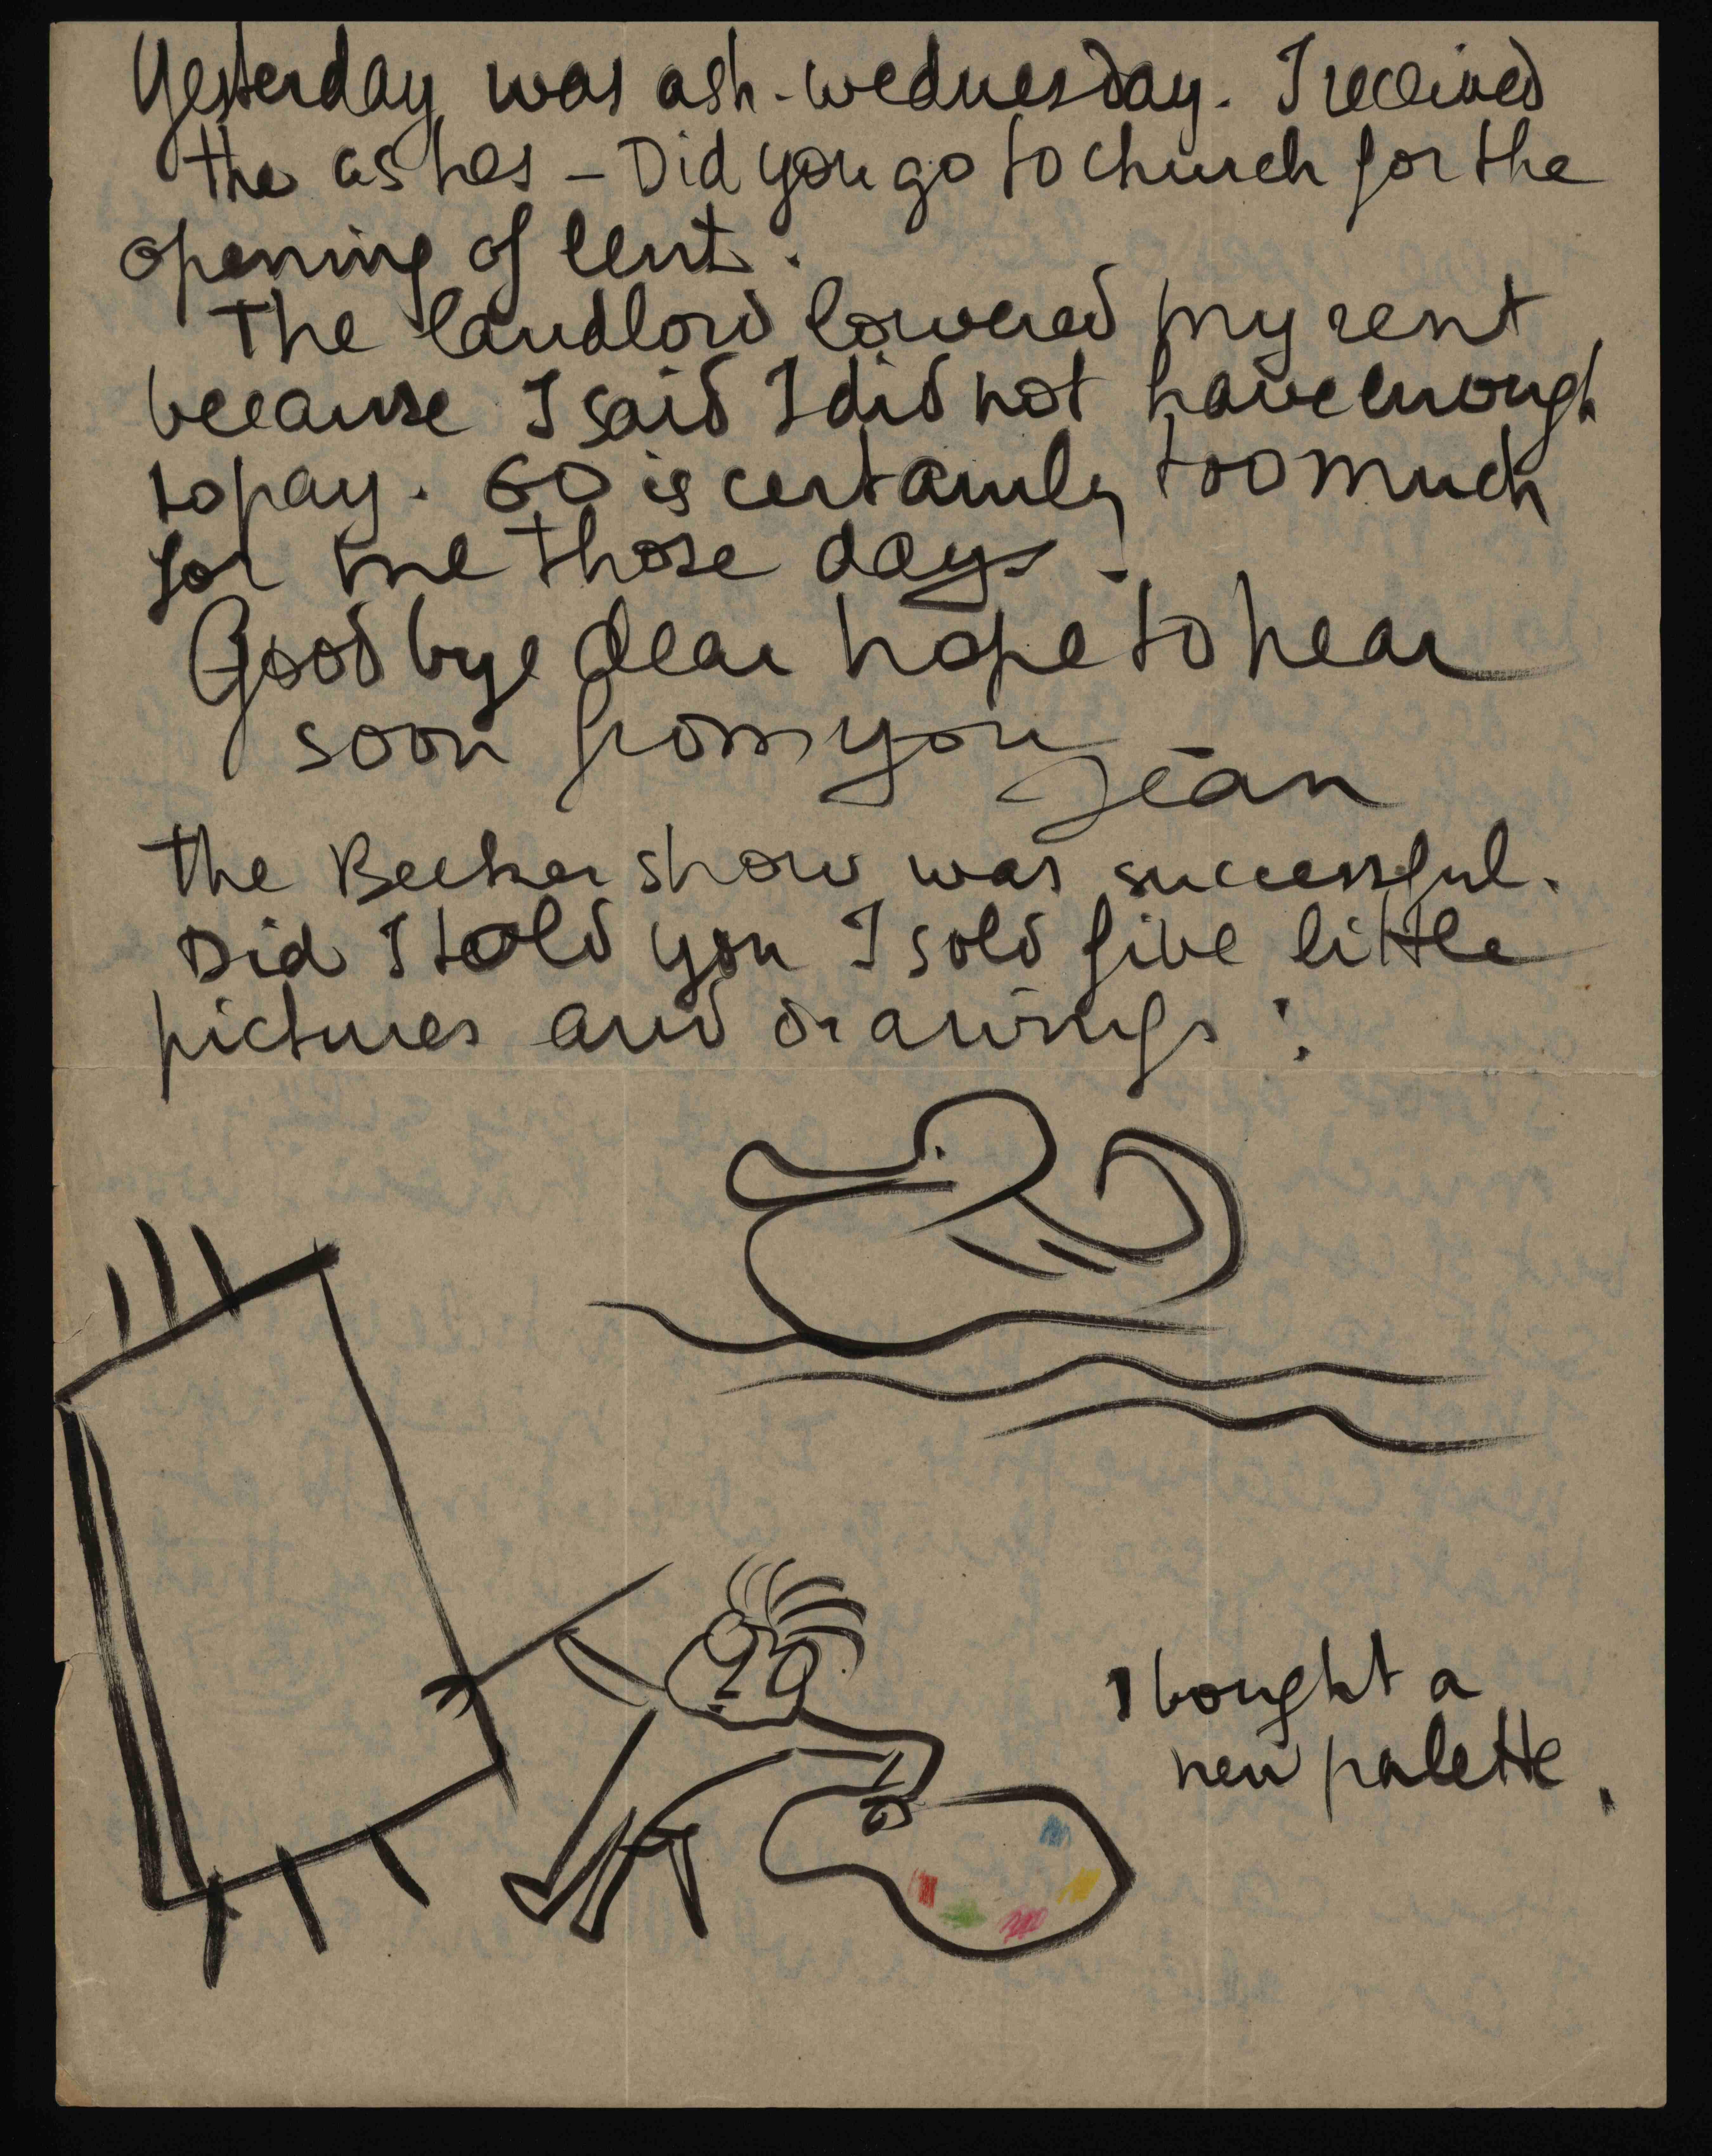 Yesterday was ash-wednesday. I received
the ashes – Did you go to church for the
opening of lent.
The landlord lowered my rent
because I said I did not have enough
to pay. 60 is certainly too much
for me those days!
Good bye dear hope to hear
soon from you
Jean
the Becker show was successful.
Did I told you I sold five little
pictures and drawings:
I bought a
new palette.